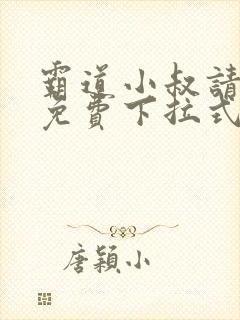 霸道小叔請
免費下拉式
唐穎小